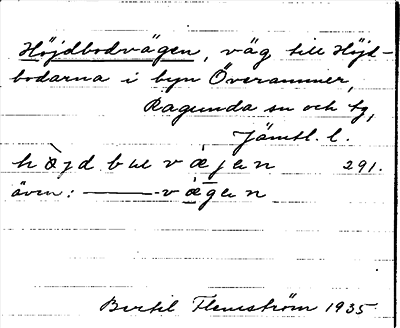 Höjdbodvägen, väg till Höjd-
bodarna i byn Överammer,
Ragunda sn och tg,
Jämtl. l.
291.
även: ——— vægen
Bertil Flemström 1935.